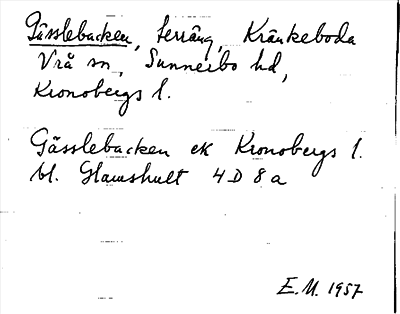 Gässlebacken, terräng, Kränkeboda
Vrå sn, Sunnerbo hd,
Kronobergs l.
Gässlebacken ek Kronobergs l.
bl. Hamshult 4D 8a
E.M. 1957